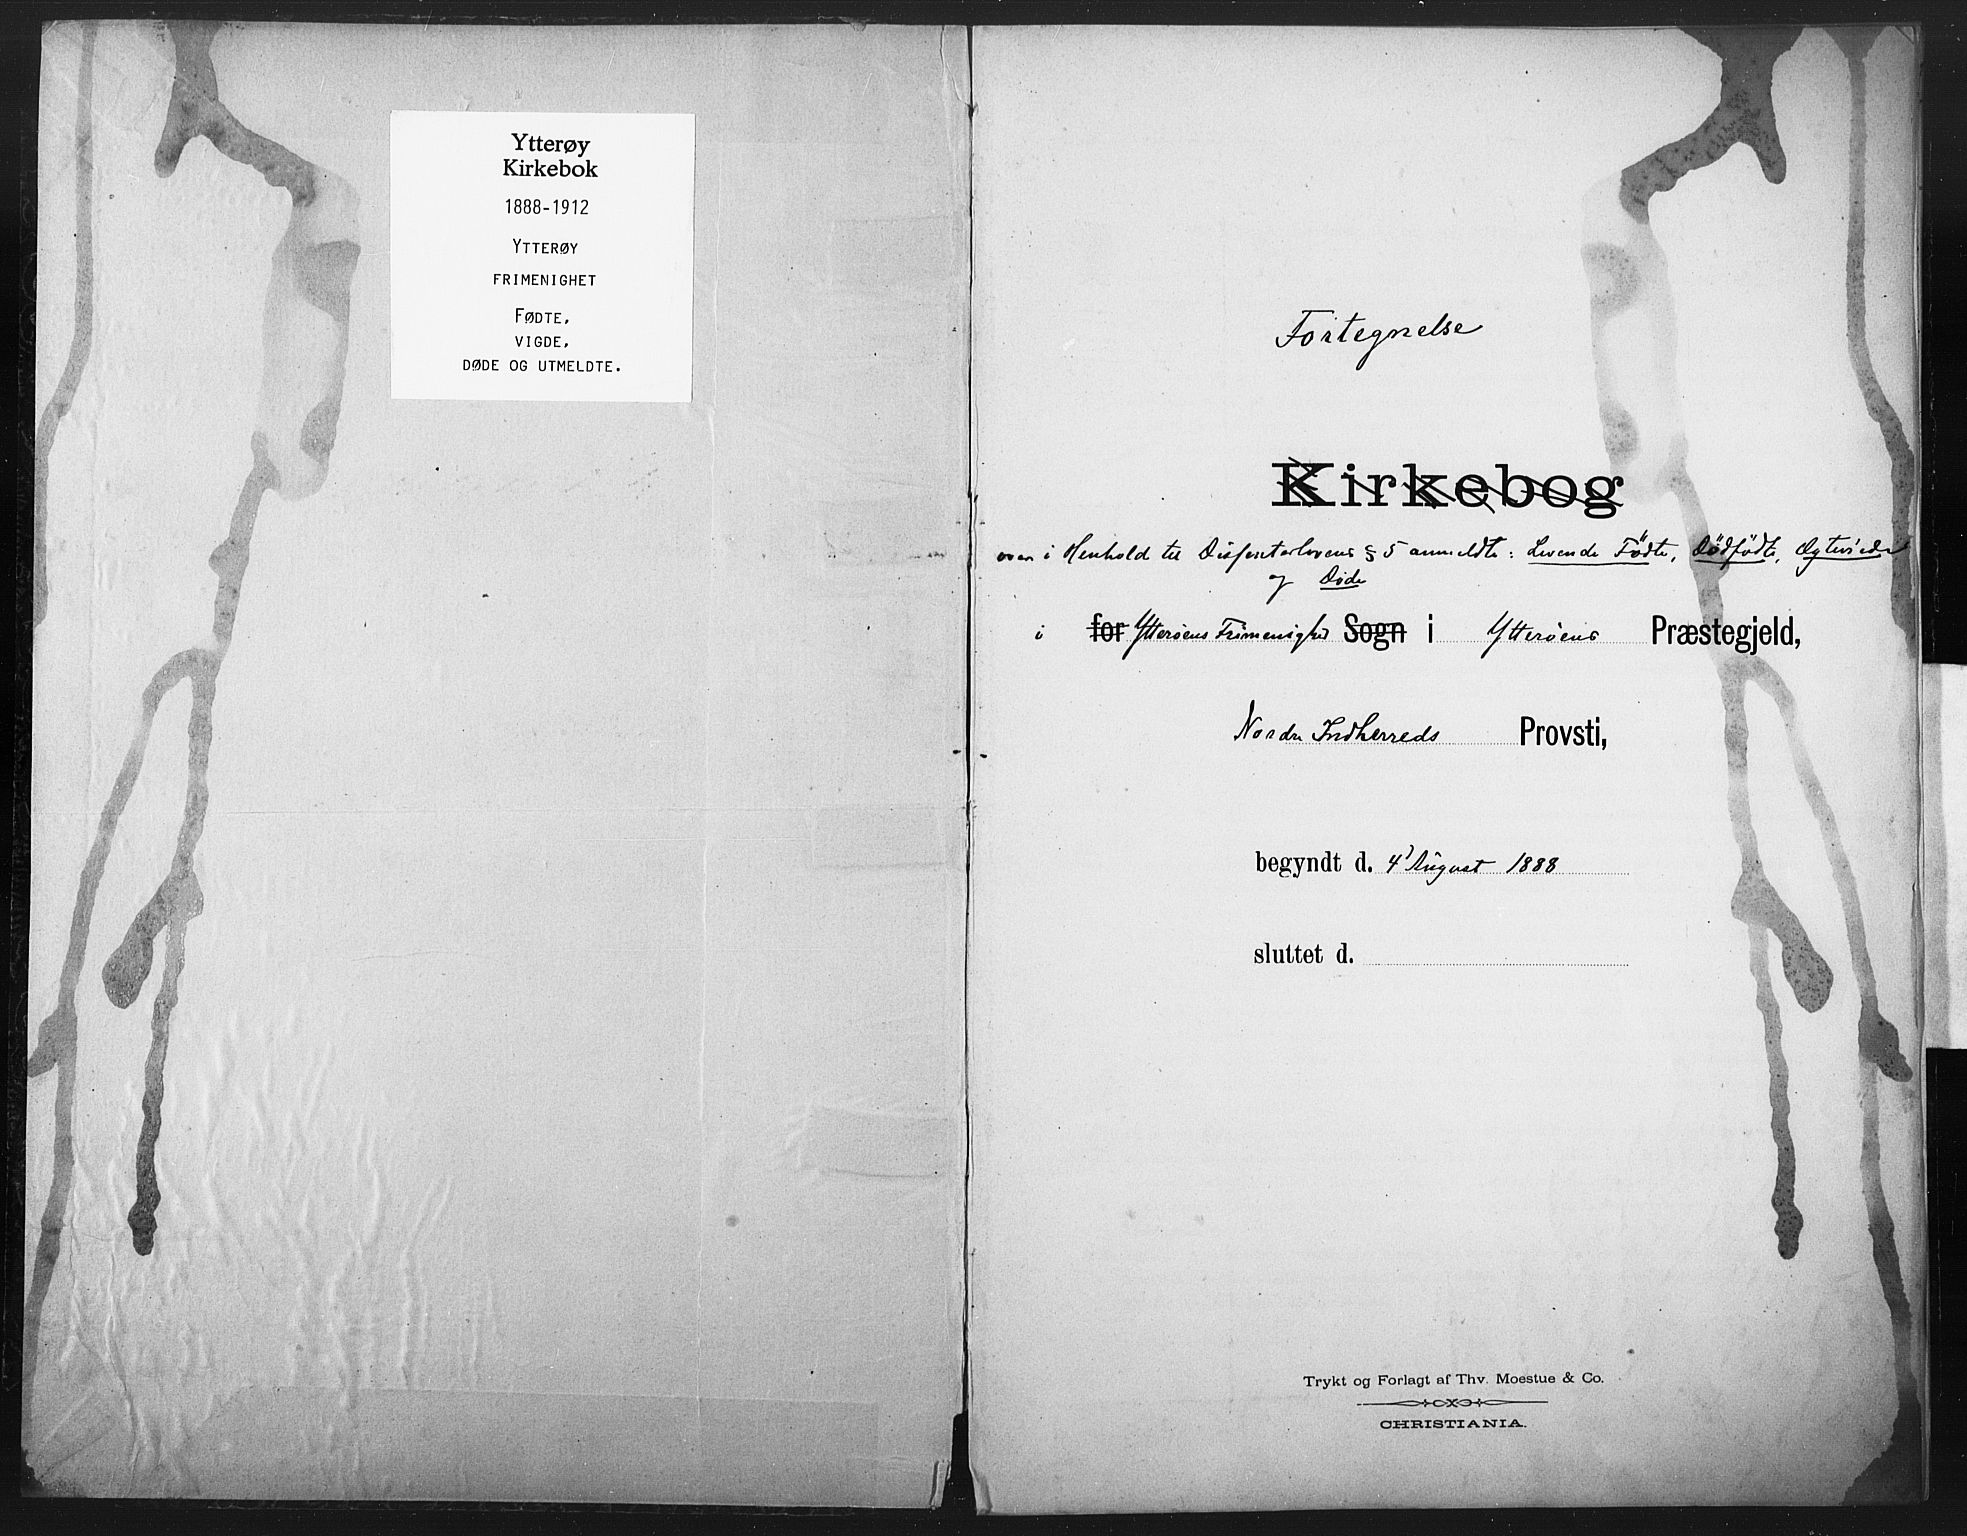 Ytterøy
Kirkebok
1888-1912
YTTERØY
FRIMENIGHET
FØDTE,
VIGDE,
DØDE OG UTMELDTE.
Fortegnelse
Kirkebog
over i Henhold til Dissenterlovens § 5 anmeldte: Levende Födte, Dödfödte, Ægteviede
og Døde
i for Ytterøens Frimenighed Sogn i Ytterøens Præstegjeld,
Nordre Indherreds Provsti,
begyndt d. 4' August 1888
sluttet d.
Trykt og Forlagt af Thv. Moestue & Co.
CHRISTIANIA.